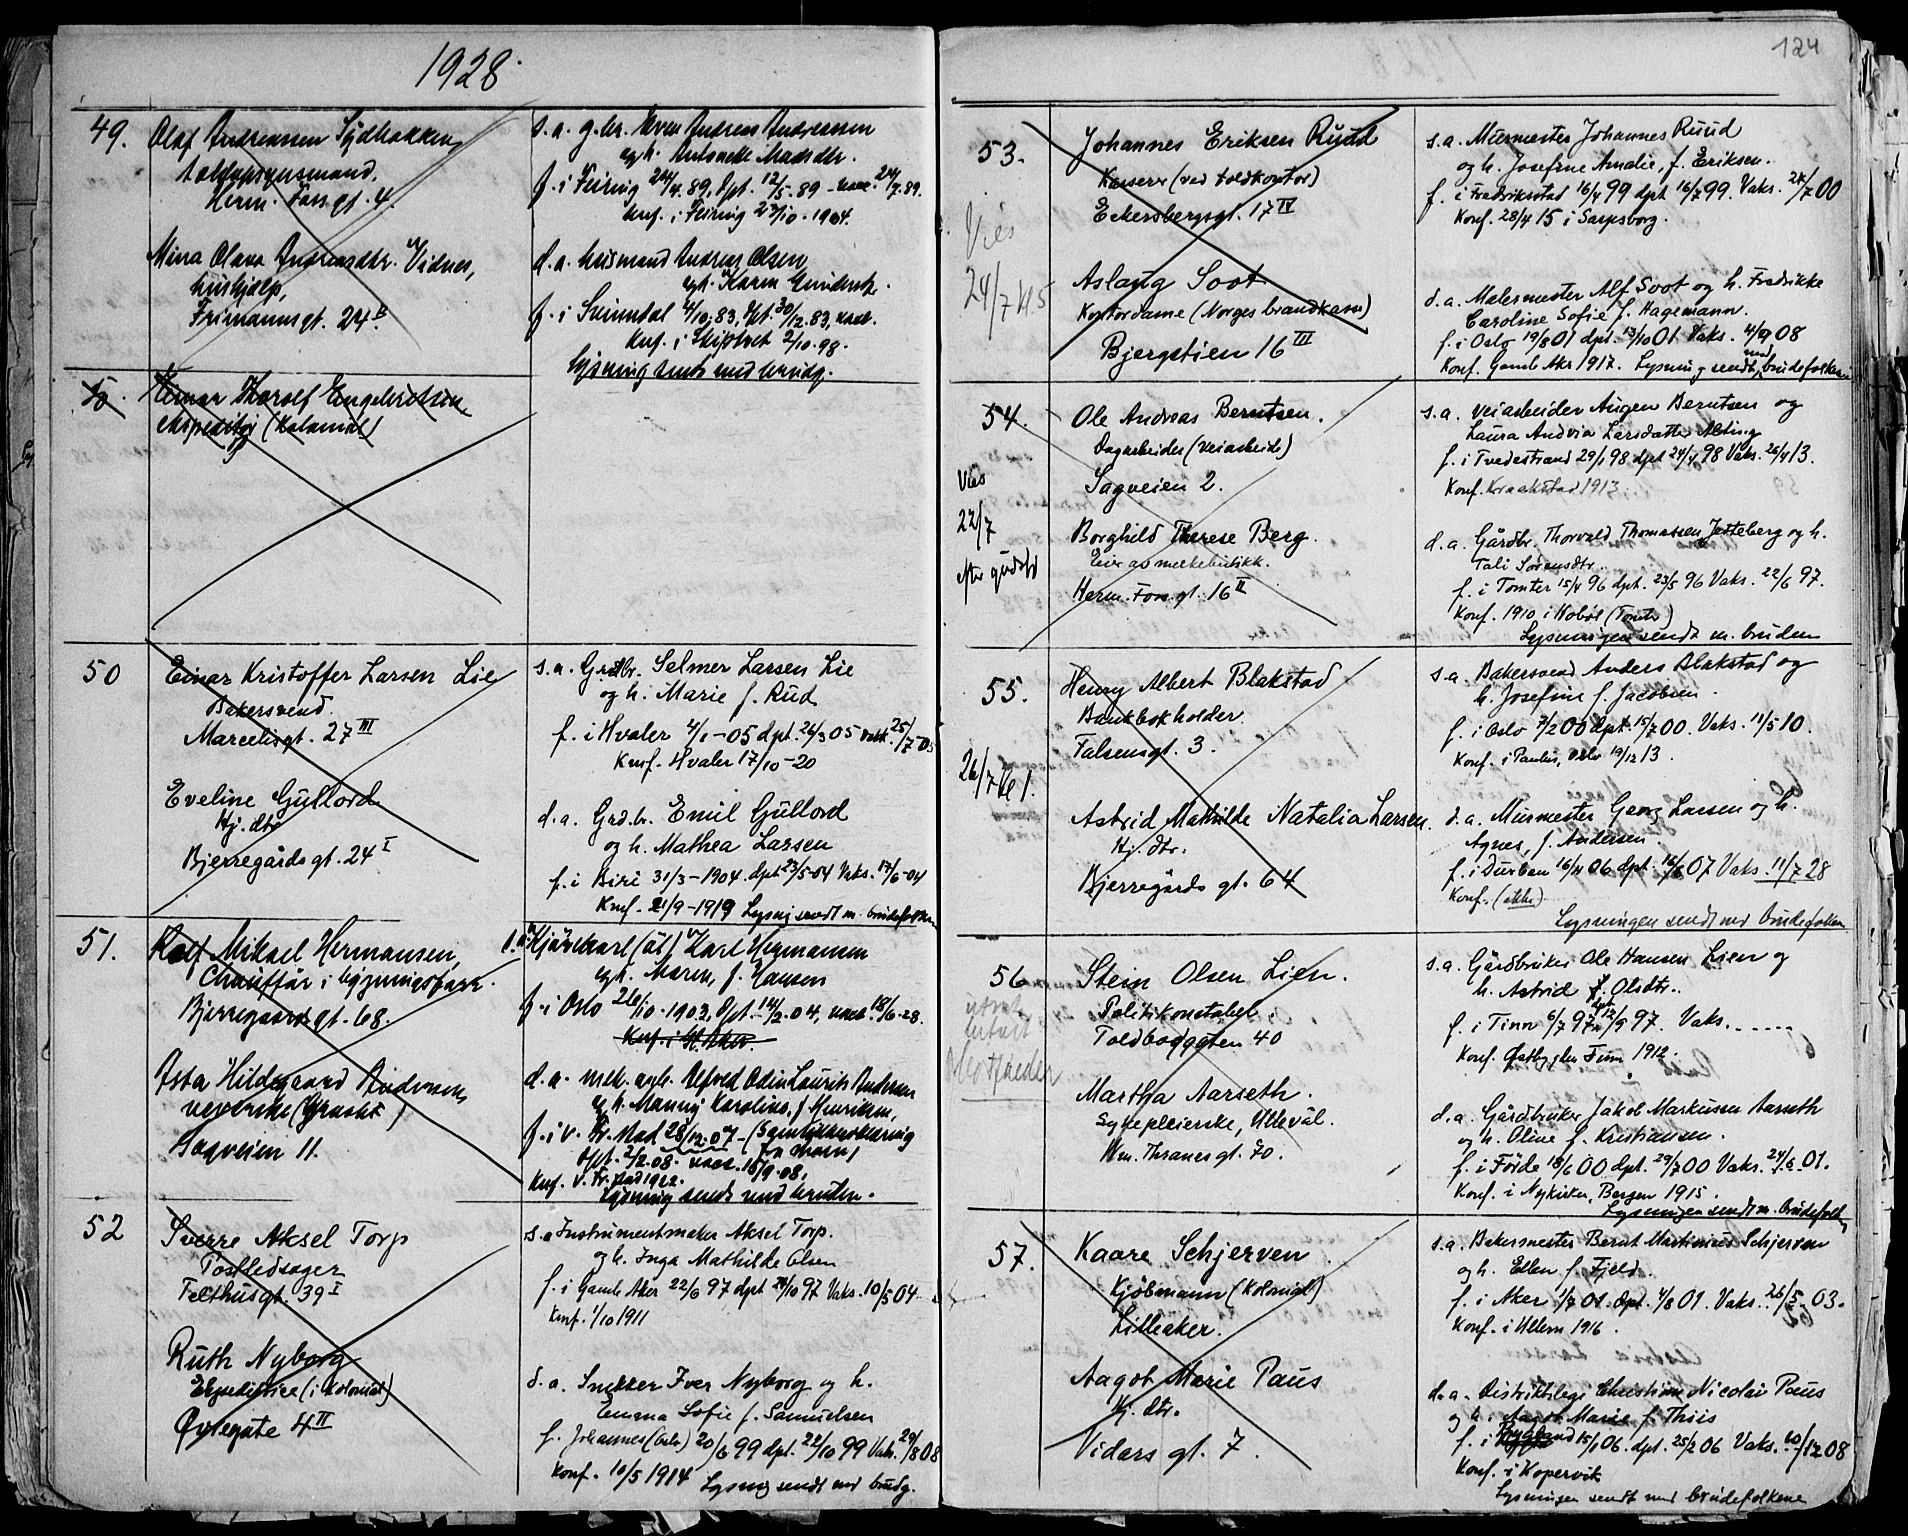 1928.
49. Olaf Andreassen Sydhakken
toldopsynsmand.
Herm. Foss gt. 4.
s.a. g.br. Even Andreas Andreassen
og h. Antonette Madsdtr.
f. i Feiring 24/4.89, dpt. 12/5.89 - vacc. 24/7.89.
Knf. i Feiring 23/10 - 1904.
Mina Olava Andreasdtr. Vidnes,
hushjælp,
Frimannsgt. 24B
d.a. husmand Andreas Olsen
og h. Karen
f. i Svinndal 4/10.83, dpt. 30/12.83, vacc.
Knf. i Skiptvet 2/10.98.
Lysning sendt med brudg.
50. Einar Thorolf Engebretsen
ekspeditør (Kolonial)
50 Einar Kristoffer Larsen Lie
Bakersvend.
Marcelisgt. 27 III
s.a. Grdbr. Selmer Larsen Lie
og h. Marie f. Rud
f. i Hvaler 4/1-05 dpt. 26/3 05 vakk. 25/7-05
Knf. Hvaler 17/10-20
Eveline Gullord
Hj. dtr
Bjerregårds gt. 24 I
d.a. Grd.br. Emil Gullord
og h. Mathea Larsen
f. i Biri 31/3-1904. dpt 23/5-04 Vaks. 17/6-04
Knf. 21/9-1919 Lysnig sendt m. brudefolken
51. Rolf Mikael Hermansen,
Chauffør i bygningsfarr.
Bjerregaards gt. 68.
s.a. Kjørekarl (åt) Karl Hermansen
og h. Maren, f. Hansen
f. i Oslo 26/10-1903, dpt. 14/2.04, vacc. 18/6-28.
Knf. i Gl. Aker.
Asta Hildegaard Andersen,
veverske (Graah)
Sagveien 11.
d.a. mek. arb. Alfred Odin Laurits Andersen
og h. Manny Karoline, f. Henriksen,
f. i V. Fr.stad 28/12.07 - (Samtykkeerklæring
fra moren)
dpt. 2/2.08. vacc. 15/9.08,
Knf. V. Fr.stad 1922.
Lysning sendt med bruden.
52 Sverre Aksel Torp
Postledsager
Felthusgt. 39 I
s.a. Instrumentmaker Aksel Torp.
og h. Inga Mathilde Olsen
f. i Gamle Aker 22/6 97 dpt 24/10 97 Vaks. 10/5 04
Knf. 1/10 1911
Ruth Nyborg
Ekspeditrice (i Kolonial)
Øvregate 4 II
d.a. Snekker Iver Nyborg og h.
Emma Sofie f. Samuelsen
f. Johannes (Oslo) 20/6 99 dpt. 22/10 99 Vaks. 29/8 08
Konf. 10/5 1914 Lysnig sendt med brudg.
124
53. Johannes Eriksen Ruud
Kasserer (ved toldkontor)
Eckersbergsgt. 17 IV
s.a. Murmester Johannes Ruud
og h. Josefine Amalie, f. Eriksen.
f. i Fredrikstad 16/4 99 dpt 16/7 99. Vaks. 24/7 00
Konf. 28/4 15 i Sarpsborg.
Vies
24/7 kl 5
Aslaug Soot
Kontordame (Norges brandkasse)
Bjergstien 16 III
d.a. Malermester Alf Soot og h. Fredrikke
Caroline Sofie f. Hagemann.
f. i Oslo 19/8 01 dpt. 13/10 01 Vaks. 4/9 08
Konf. Gamle Aker 1917. Lysning sendt med brudefolkene
54. Ole Andreas Berntsen.
Dagarbeider (veiarbeide)
Sagveien 2.
s.a. veiarbeider Augen Berntsen og
Laura Andria Larsdatter Alting
f. i Tvedestrand 29/1 98 dpt 24/4 98 Vaks. 26/4 13.
Konf. Kraakstad 1913.
Vies
22/7
efter gudstj
Borghild Therese Berg.
Eier av melkebutikk.
Herm. Foss gt. 16 II
d.a. Gårdbr. Thorvald Thomassen Jetteberg og h.
Tali Sørensdtr.
f. i Tomter 15/4 96 dpt. 23/5 96 Vaks. 22/6 97.
Konf. 1910 i Hobøl (Tomter)
Lysningen sendt m. bruden
55. Henry Albert Blakstad
Bankbokholder.
Falsensgt. 3.
s.a. Bakersvend Anders Blakstad og
h. Josefine f. Jacobsen.
f. i Oslo 7/2 00 dpt. 15/7 00. Vaks. 11/5 10.
Konf. i Paulus, Oslo 19/12 13.
26/7 kl 1.
Astrid Mathilde Natalia Larsen.
Hj. dtr.
Bjerregårds gt. 64
d.a. Murmester Georg Larsen og h.
Agnes, f. Andersen.
f. i Durban 16/4 06 dpt. 16/6 07 Vaks. 11/7 28
Konf. (ikke)
Lysningen sendt med brudefolken
56 Stein Olsen Lien.
Politikonstabel.
Toldbodgaten 40
s.a. Gårdbruker Ole Hansen Lien og
h. Astrid f. Olsdtr..
f. i Tinn 6/7 97 dpt 12/9 97. Vaks.......
Konf. Østbygden Tinn 1912.
Martha Aarseth.
Sykepleierske, Ullevål.
Wm. Thranes gt. 70.
d.a. Gårdbruker Jakob Markussen Aarseth
og h. Oline f. Kristiansen.
f. i Förde 18/6 00 dpt. 29/7 00 Vaks. 24/6 01.
Konf. i Nykirken, Bergen 1915.
Lysningen sendt m. brudefolk
57. Kaare Schjerven
Kjöbmann (Kolonial)
Lilleaker.
s.a. Bakermester Bernt Martinius Schjerven
og h. Ellen f. Fjeld.
f. i Aker 1/7 01. dpt. 4/8 01. Vaks. 26/5-03.
Konf. i Ullern 1916.
Aagot Marie Paus
Hj. dtr.
Vidars gt. 7.
d.a. Distriktslege Christian Nicolai Paus
og h. Aagot Marie f. Thiis
f. i Bygland 15/1 06. dpt. 25/2 06 Vaks. 10/12 08
Konf. i Kopervik
Lysningen sendt med brudefolkene